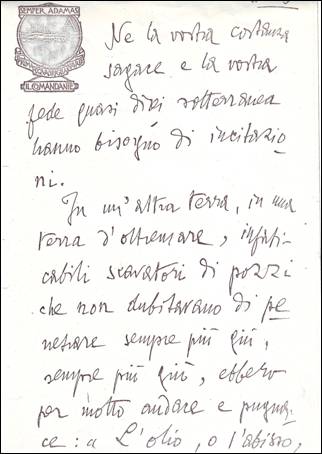 SEMPER ADAMAS
IL COMANDANTE
Ne la vostra costanza
sagace e la vostra
fede quasi direi sotterranea
hanno bisogno di incitazio
ni.
In un'altra terra, in una
terra d'oltremare, infati-
cabili scavatori di pozzi
che non dubitavano di pe
netrare sempre più giù,
sempre più giù, ebbero
per motto audace e pugna-
ce: a L'olio, o l'abisso,